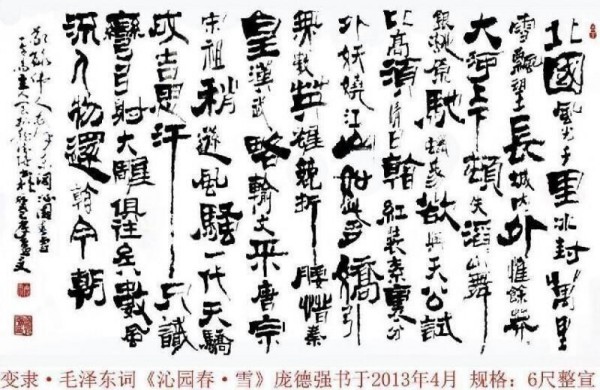 北國風光千里冰封萬里
雪飄望長城内外惟餘莽
大河上下頓失滔山舞
銀蛇原馳蠟象欲與天公試
比高須晴日看紅裝素裹分
外妖嬈江山如此多嬌引
無數英雄競折腰惜秦
皇漢武略輸文采唐宗
宋祖稍遜風騷一代天驕
成吉思汗只識
彎弓射大雕俱往矣數風
流人物還看今朝
敬録偉人毛澤東詞沁園春雪
变隶·毛泽东词《沁园春·雪》庞德强书于2013年4月 规格：6尺整宣